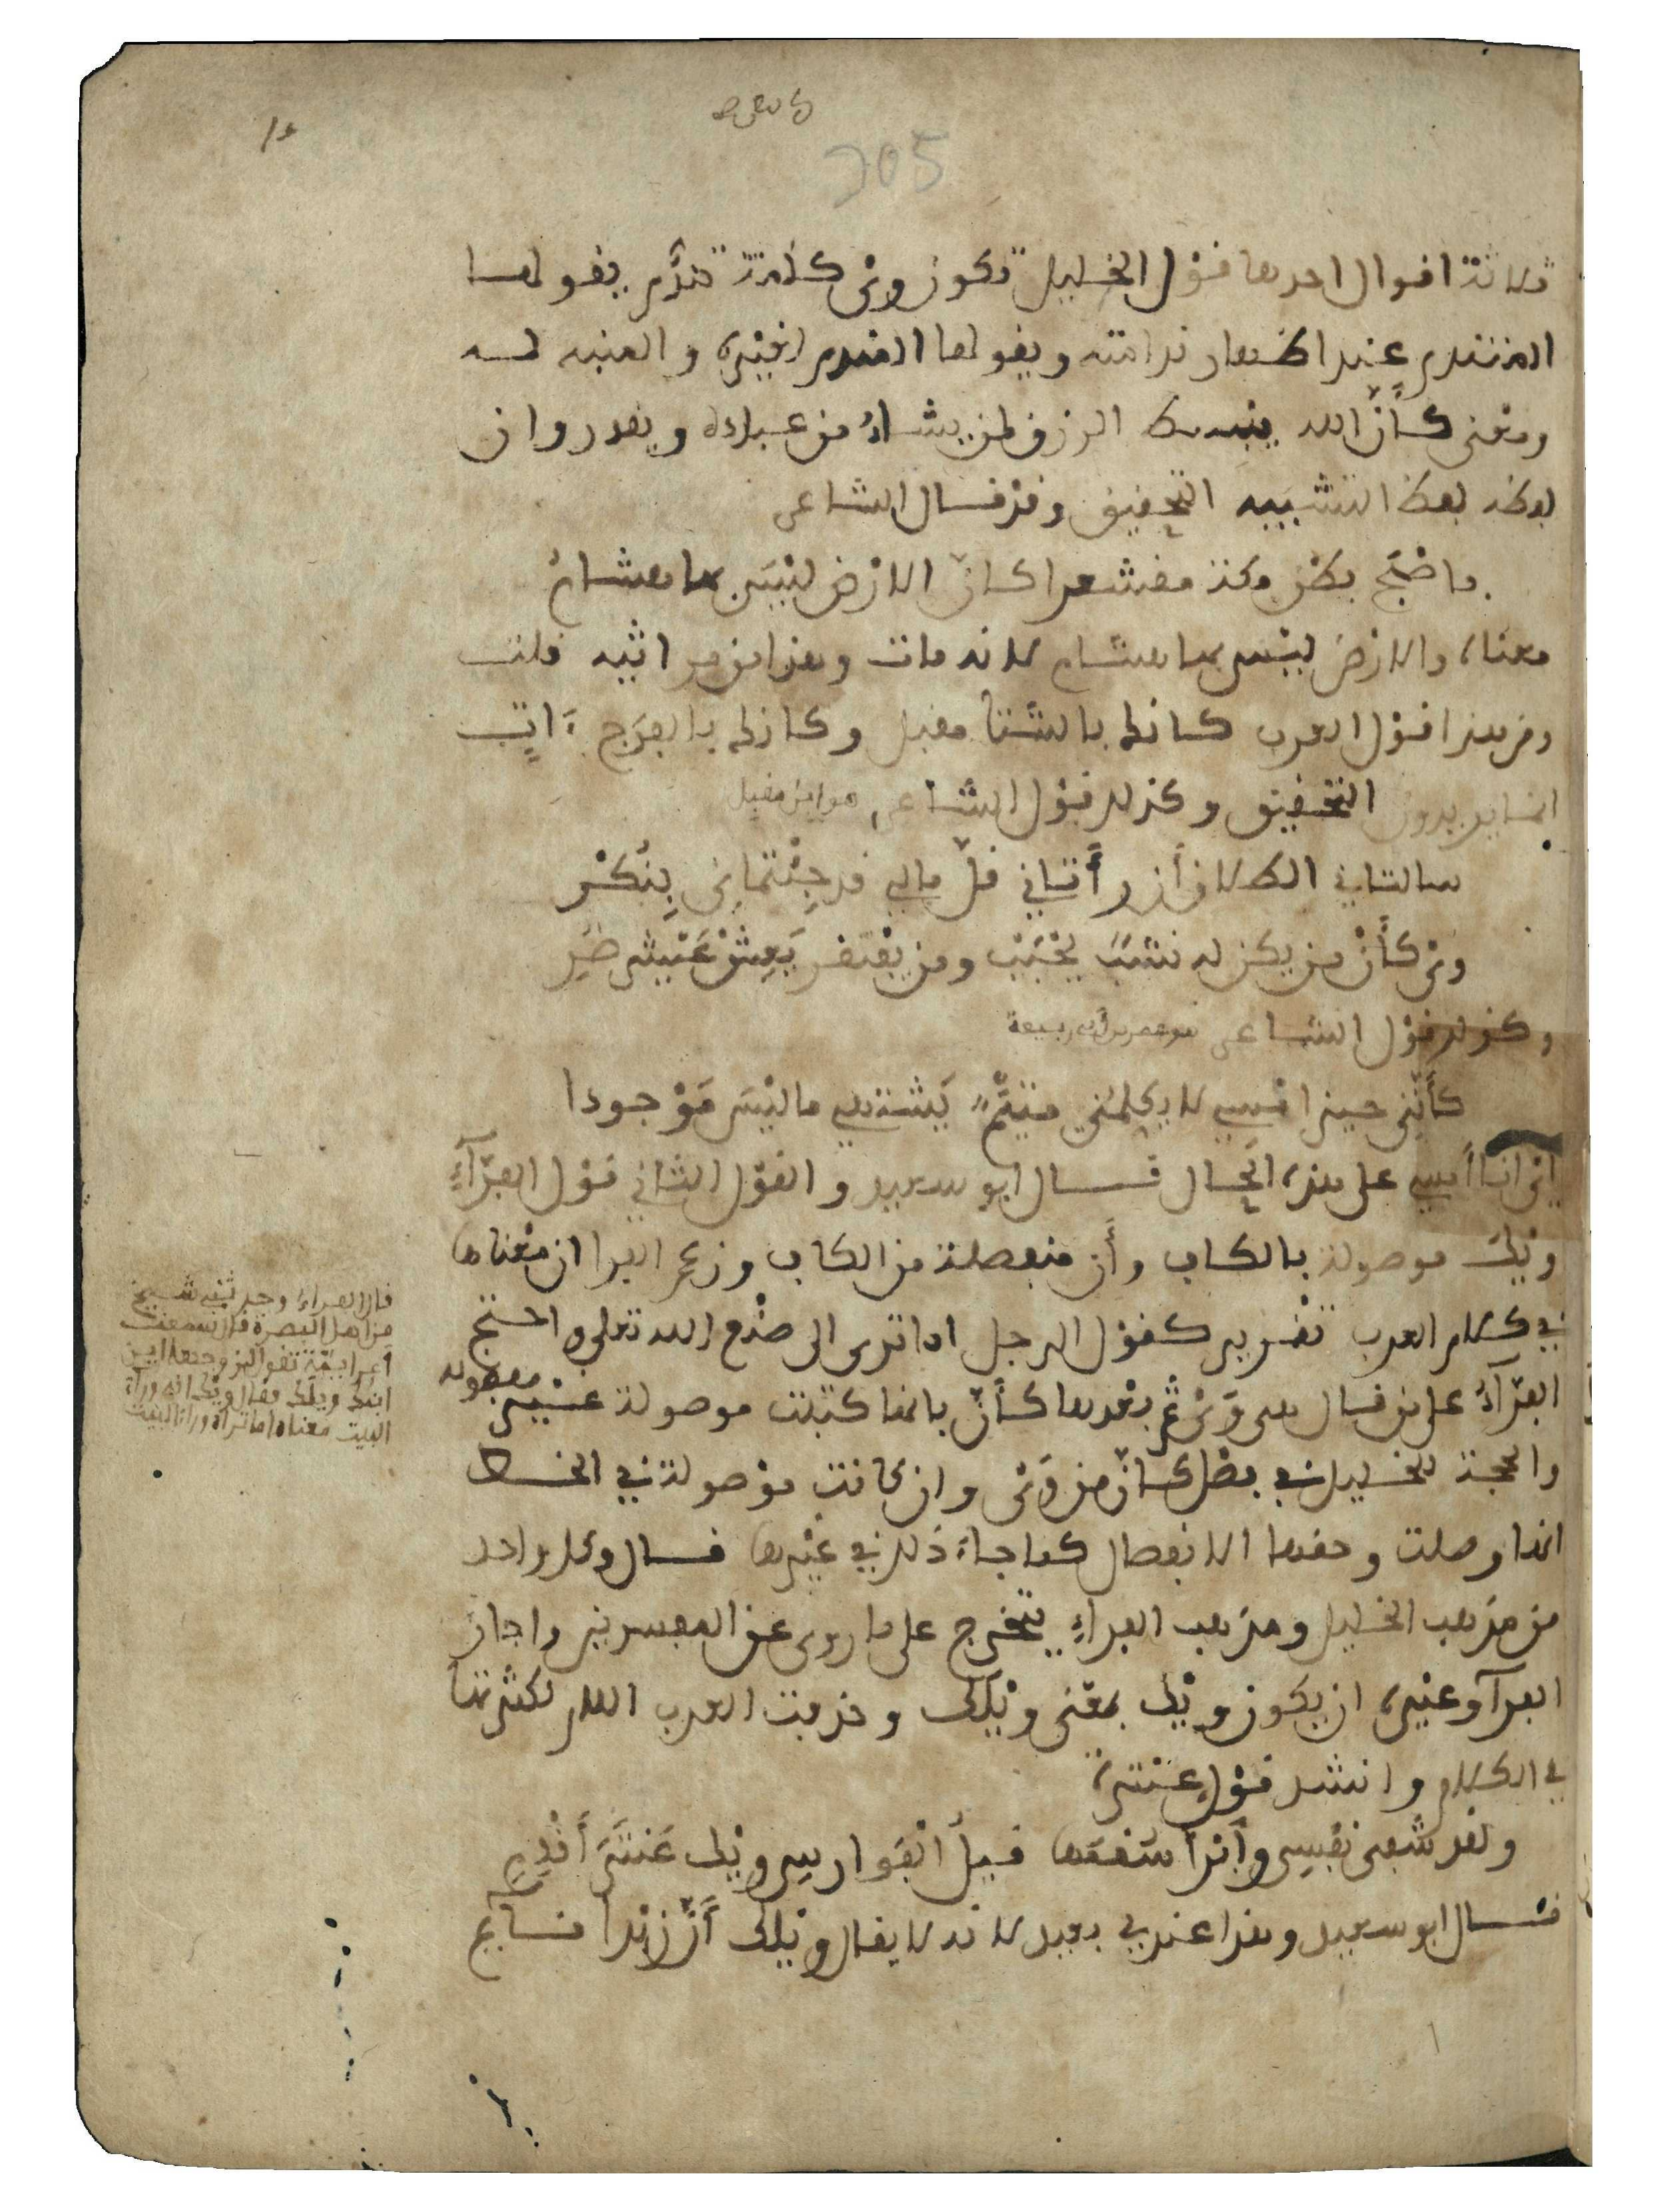 205
ثلاثة اقوال احدها قول الخليل تكون وَيْ كلمة تندُّم يقولها
المتندم عند اظهار ندامته ويقولها المندم لغيره والمنبه له
ومعنى كأنّ الله يبسط الرزق لمن يشاءُ من عباده ويقدر وان
لفظه لفظ التشبيه التحقيق وقد قال الشاعر
فاصْبَح بطن مكة مقشعرا كان الارْض ليْسَ بها هشامُ
معناه والارْضَ ليْس بها هشام لانه مات وهذا من مراثيه قلت
ومن هذا قوْل العرب كانك بالشتا مقبل وكانك بالفرَج ءَاتٍ
انما يريدون التحقيق وكذلك قوْل الشاعر هو ابن مقبل
سالتاني الطلاق أن رأَتاني قلّ مالي قد جِئْتماني بِنُكْر
ويْ كأَنْ من يكن له نشبٌ يُحْبَبْ ومن يفْتقر يَعِشْ عَيْش ضُرِ
وكذلك قوْل الشاعر هو عمر بن أبي ربيعة
كأَنّني حين امْسي لا يكلمني متيّمٌ يَشْتهي ما ليْسَ مَوْجودا
ايْ انا أمسي على هذه الحال قال ابو سعيد والقوْل الثاني قوْل الفرّآءِ
ويْكَ موصولة بالكاف وأَن منفصلة من الكاف وزعم الفرا ان معْناها
في كلام العرب تقْرير كقوْل الرجل اما ترى الى صُنْع الله تعلى واحتج
الفرّآءُ على من قال هي وَيْ ثم بعْدها كأَنّ بانها كتبت موصولة غيْر مفصولة
والحجة للخليل في فصْل كأنّ من وَيْ وان كانت موْصولة في الخط
انها وصلت وحقها الانفصال كما جاءَ ذلك في غيْرها قال وكل واحد
من مذهب الخليل ومذهب الفراءِ يتخرج على ما روي عن المفسرين واجاز
الفرآ وغيره ان يكون ويْك بمعْنى ويْلك وحذفت العرب اللام لكثرتها
في الكلام وانشد قوْل عنْترة
ولقد شفى نفْسِي وأَبْرأ سُقْمَها قيلُ الْفَوارس ويْك عَنْتَرَ أَقْدِمِ
قال ابو سعيد وهذا عندي بعيد لانه لا يقال ويْلك أَنّ زيْداً قائم
قال الفراءُ وحدثني شيخ
من اهل البصرة قال سمعت
أعرابيّة تقول لزوجها اين
ابنك ويلك فقال ويْك انه وراء
البيت معناه اما تراه وراءَ البيت